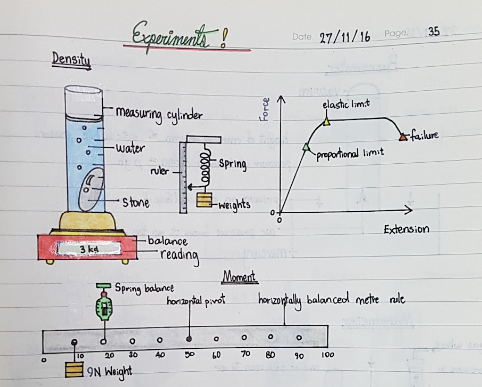 Experiments !
Date 27/11/16 Page 35
Density
measuring cylinder
water
stone
balance
3 kg
reading
ruler
spring
weights
Force
elastic limit
proportional limit
failure
0
Extension
Moment
Spring balance
horizontal pivot
horizontally balanced metre rule
0 10 20 30 40 50 60 70 80 90 100
9N Weight